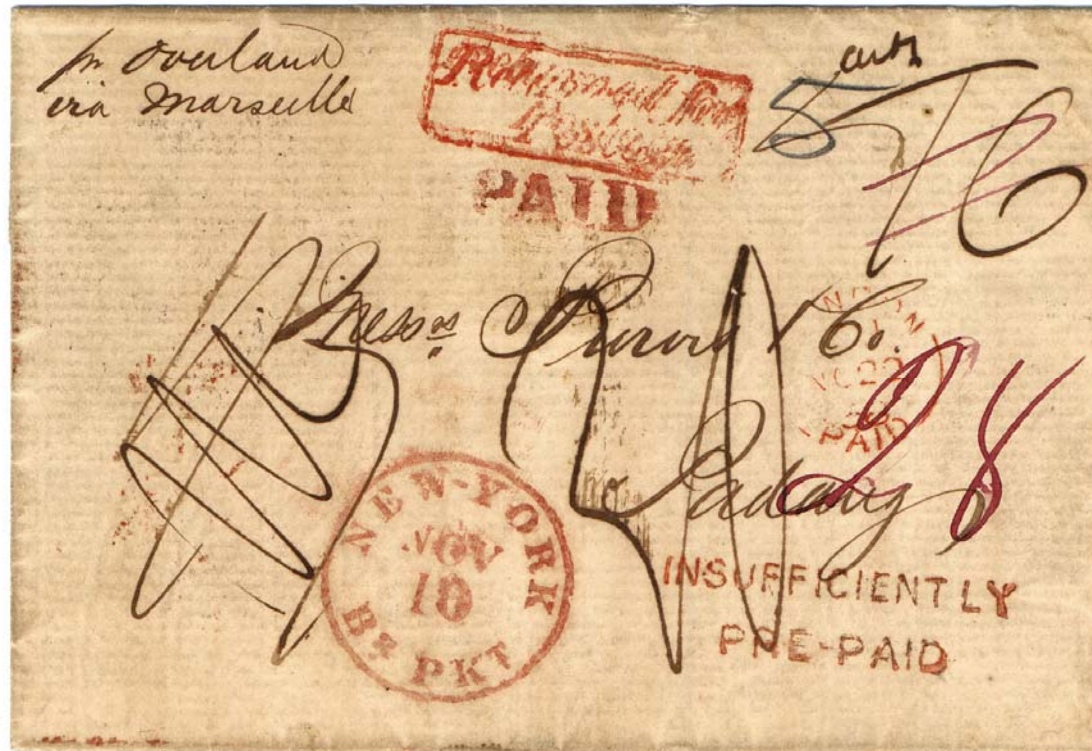 pr Overland
via Marseille
Returned for
Postage
PAID
cents
5
Messrs Purvis & Co.
Padang
28
NEW-YORK
NOV
10
Br PKT
PAID
INSUFFICIENTLY
PRE-PAID